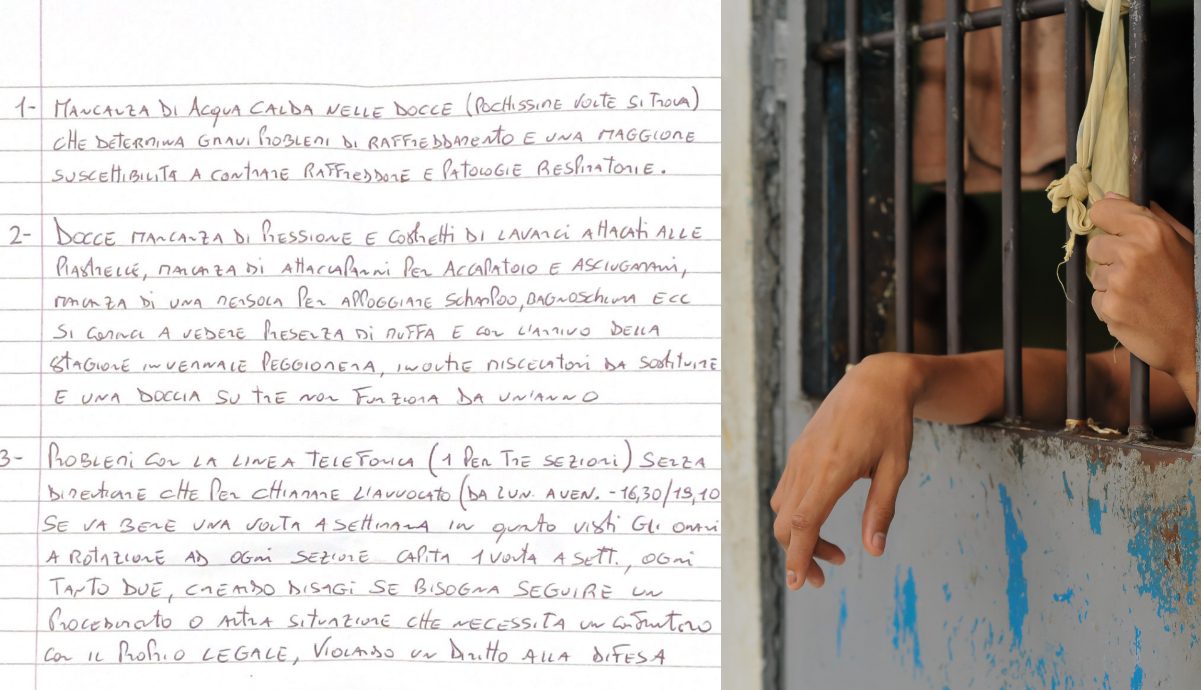 1- MANCANZA DI ACQUA CALDA NELLE DOCCE (POCHISSIME VOLTE SI TROVA)
CHE DETERMINA GRAVI PROBLEMI DI RAFFREDDAMENTO E UNA MAGGIORE
SUSCETTIBILITA A CONTRARE RAFFREDDORE E PATOLOGIE RESPIRATORIE.
2- DOCCE MANCANZA DI PRESSIONE E COSTRETTI DI LAVARCI ATTACATI ALLE
PIASTRELLE, MANCANZA DI ATTACCAPANNI PER ACCAPATOIO E ASCIUGAMANI,
MANCANZA DI UNA MENSOLA PER APPOGGIARE SCHAMPOO, BAGNOSCHIUMA ECC
SI COMINCI A VEDERE PRESENZA DI MUFFA E CON L'ARRIVO DELLA
STAGIONE INVERNALE PEGGIORERA, INOLTRE MISCELATORI DA SOSTITUIRE
E UNA DOCCIA SU TRE NON FUNZIONA DA UN'ANNO
3- PROBLEMI CON LA LINEA TELEFONICA (1 PER TRE SEZIONI) SENZA
DIMENTICARE CHE PER CHIAMARE L'AVVOCATO (DA LUN. A VEN. - 16,30/19,10
SE VA BENE UNA VOLTA A SETTIMANA IN QUANTO VISTI GLI ORARI
A ROTAZIONE AD OGNI SEZIONE CAPITA 1 VOLTA A SETT., OGNI
TANTO DUE, CREANDO DISAGI SE BISOGNA SEGUIRE UN
PROCEDIMENTO O ALTRA SITUAZIONE CHE NECESSITA UN CONFRONTO
CON IL PROPRIO LEGALE, VIOLANDO UN DIRITTO ALLA DIFESA